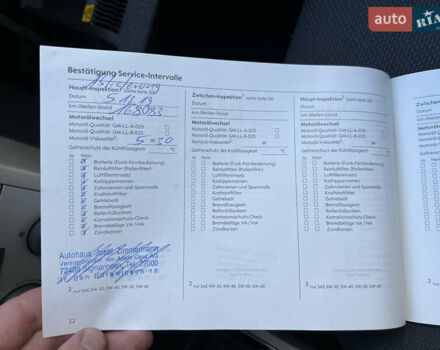 auto RIA
Bestätigung Service-Intervalle
Haupt-Inspektion¹ (siehe Seite 20)
Datum 5.11.19
km-/Meilen-Stand 168083
Motorölwechsel
Motoröl-Qualität: GM-LL-A-025
Motoröl-Qualität: GM-LL-B-025
Motoröl-Viskosität²: 5 W 30
Gefrierschutz der Kühlflüssigkeit °C
Ja Nein
Batterie (Funk-Fernbedienung)
Reinluftfilter (Pollenfilter)
Luftfiltereinsatz
Keilrippenriemen
Zahnriemen und Spannrolle
Kraftstofffilter
Getriebeöl
Bremsflüssigkeit
Reifenfüllsystem
Korrosionsschutz-Check
Bremsbeläge VA / HA
Zündkerzen
Autohaus Josef Zimmermann
Vertragshändler der Adam Opel AG
72488 Sigmaringen Tel. 72000
² nur SAE 0W-30, 0W-40, 5W-30, 5W-40
22
Zwischen-Inspektion¹ (siehe Seite 20)
Datum
km-/Meilen-Stand
Motorölwechsel
Motoröl-Qualität: GM-LL-A-025
Motoröl-Qualität: GM-LL-B-025
Motoröl-Viskosität²: W
Gefrierschutz der Kühlflüssigkeit °C
Ja Nein
Batterie (Funk-Fernbedienung)
Reinluftfilter (Pollenfilter)
Luftfiltereinsatz
Keilrippenriemen
Zahnriemen und Spannrolle
Kraftstofffilter
Getriebeöl
Bremsflüssigkeit
Reifenfüllsystem
Korrosionsschutz-Check
Bremsbeläge VA / HA
Zündkerzen
² nur SAE 0W-30, 0W-40, 5W-30, 5W-40
Haupt-Inspektion¹ (siehe Seite 20)
Datum
km-/Meilen-Stand
Motorölwechsel
Motoröl-Qualität: GM-LL-A-025
Motoröl-Qualität: GM-LL-B-025
Motoröl-Viskosität²: W
Gefrierschutz der Kühlflüssigkeit °C
Ja Nein
Batterie (Funk-Fernbedienung)
Reinluftfilter (Pollenfilter)
Luftfiltereinsatz
Keilrippenriemen
Zahnriemen und Spannrolle
Kraftstofffilter
Getriebeöl
Bremsflüssigkeit
Reifenfüllsystem
Korrosionsschutz-Check
Bremsbeläge VA / HA
Zündkerzen
² nur SAE 0W-30, 0W-40, 5W-30, 5W-40